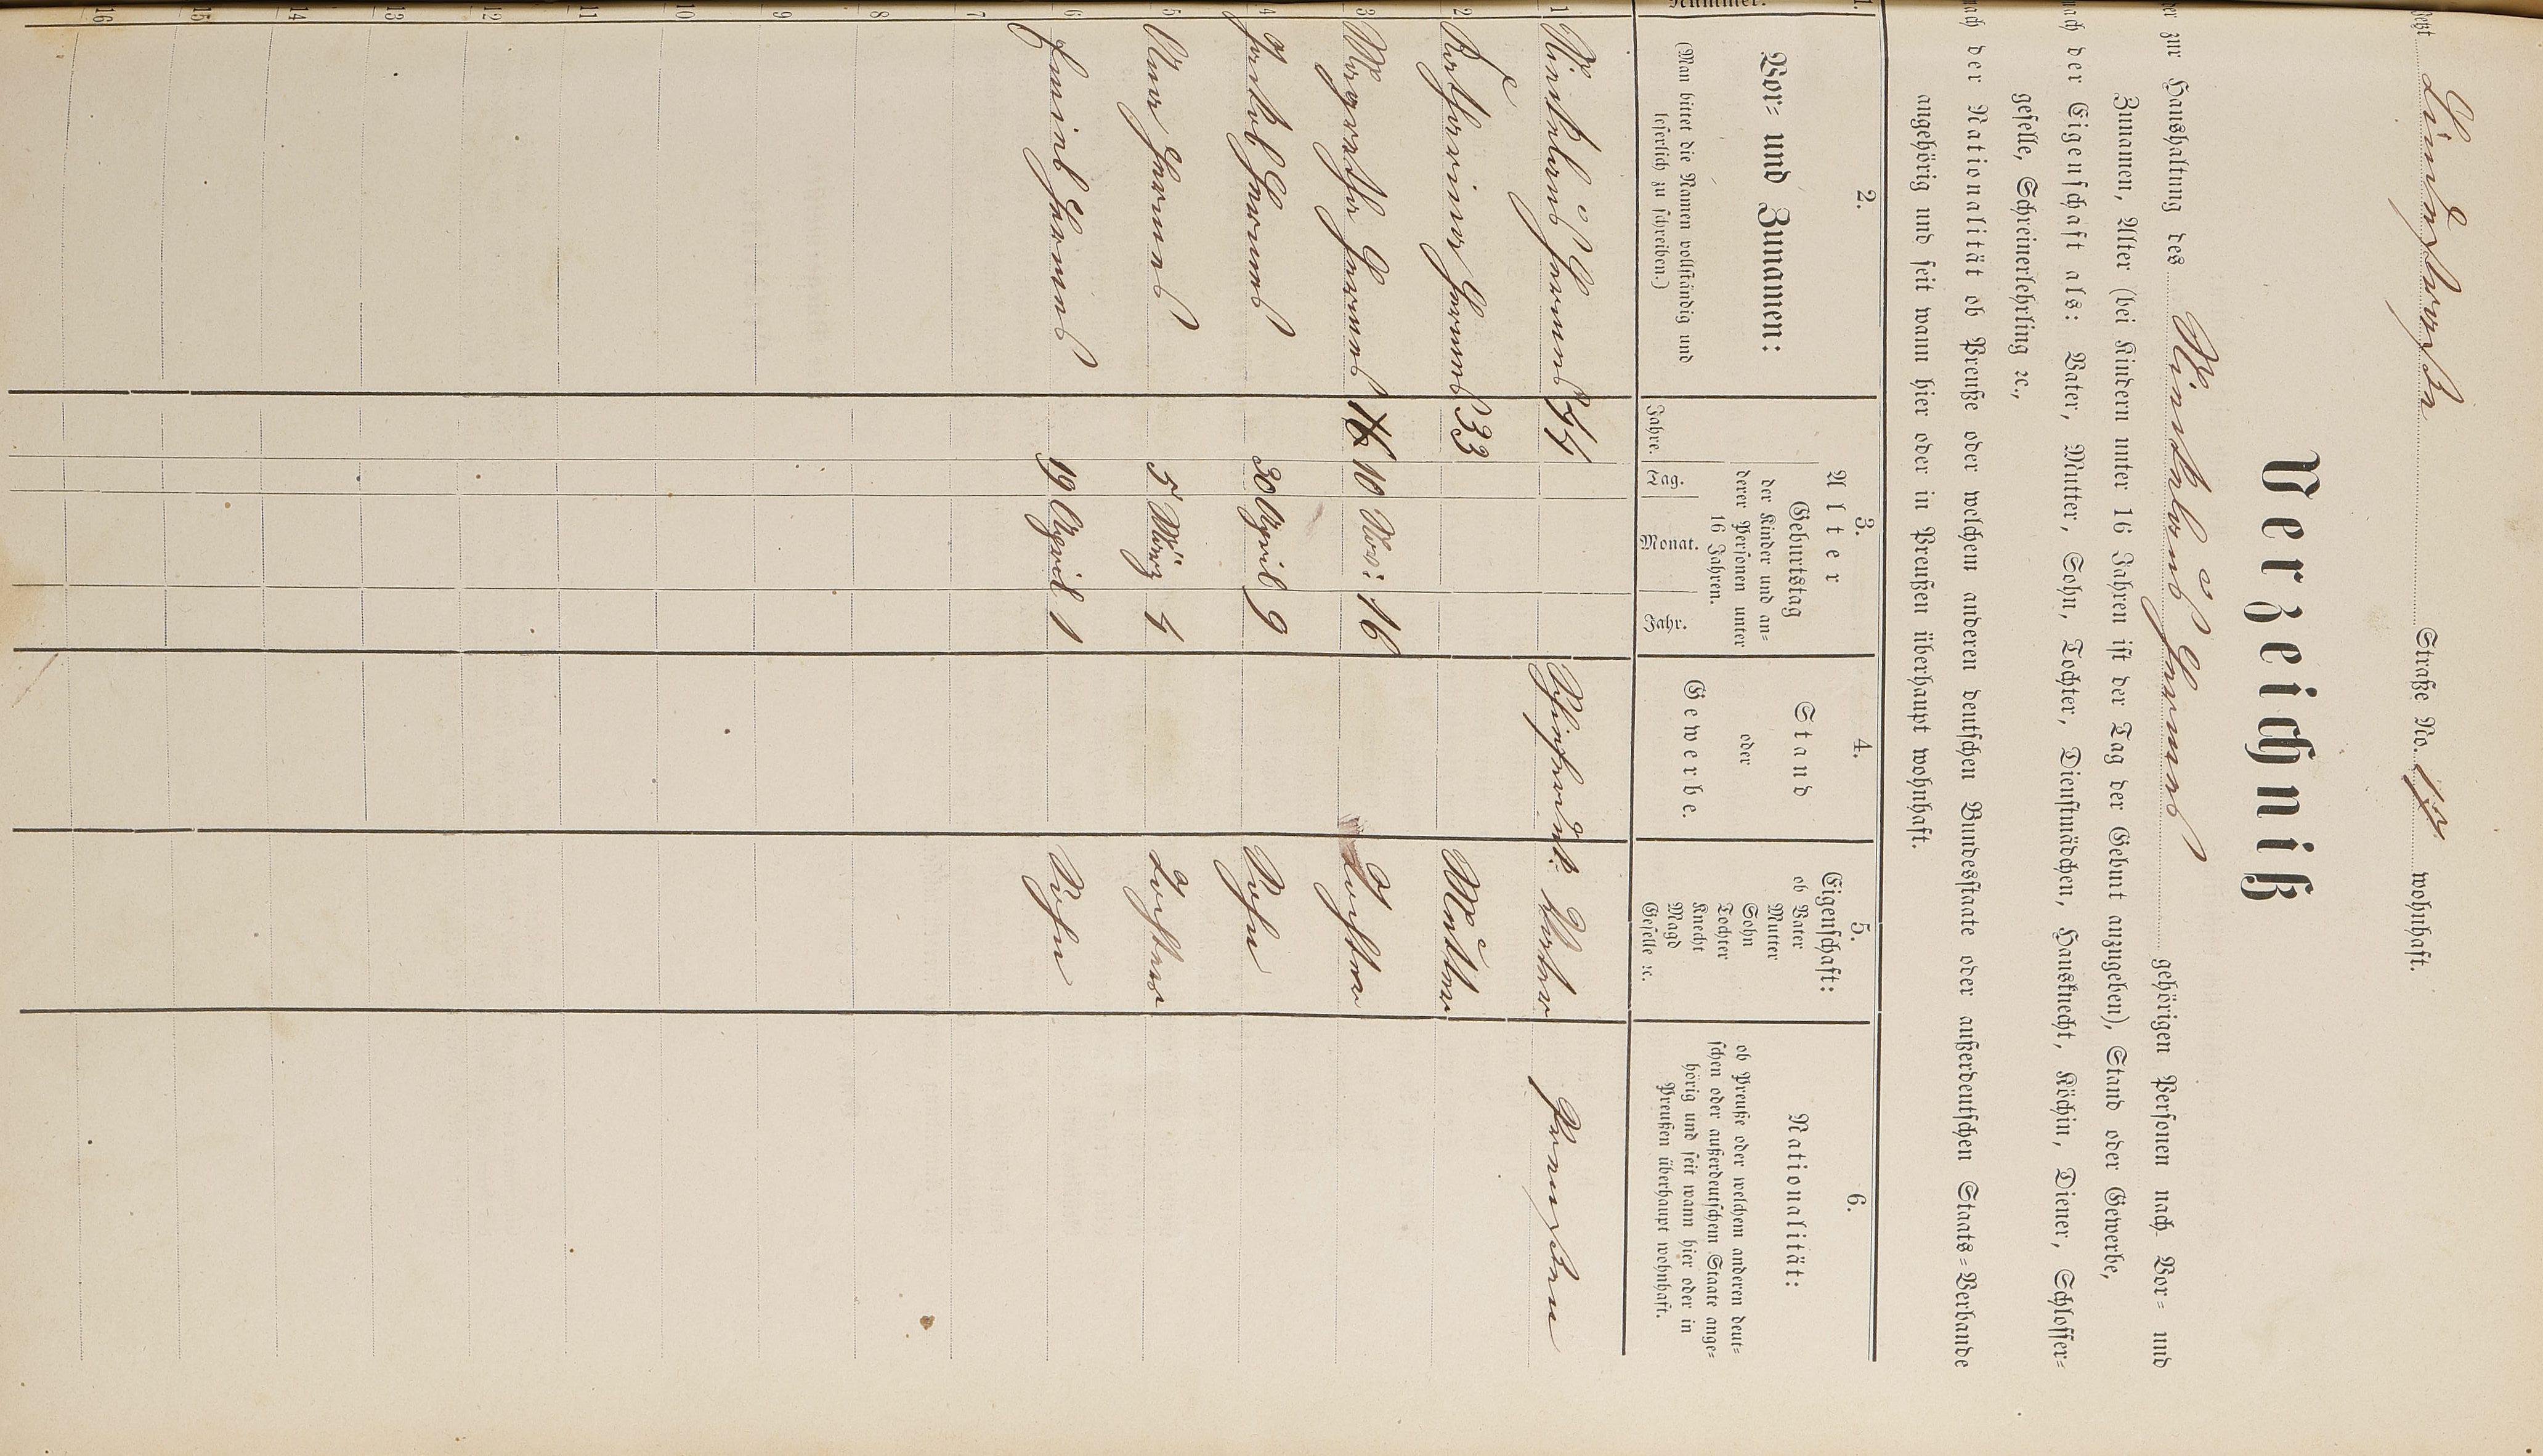 jetzt Straße No. 17 wohnhaft.
Verzeichniß
der zur Haushaltung des Nicolaus Harnes gehörigen Personen nach Vor- und
Zunamen, Alter (bei Kindern unter 16 Jahren ist der Tag der Geburt anzugeben), Stand oder Gewerbe,
nach der Eigenschaft als: Vater, Mutter, Sohn, Tochter, Dienstmädchen, Hausknecht, Köchin, Diener, Schlosser-
geselle, Schreinerlehrling ꝛc.,
nach der Nationalität ob Preuße oder welchem anderen deutschen Bundesstaate oder außerdeutschen Staats-Verbande
angehörig und seit wann hier oder in Preußen überhaupt wohnhaft.
1. 2. 3. 4. 5. 6.
Nummer.
Vor- und Zunamen:
(Man bittet die Namen vollständig und
leserlich zu schreiben.)
Alter
Jahre.
Geburtstag
der Kinder und an-
derer Personen unter
16 Jahren.
Tag. Monat. Jahr.
Stand
oder
Gewerbe.
Eigenschaft:
ob Vater
Mutter
Sohn
Tochter
Knecht
Magd
Geselle ꝛc.
Nationalität:
ob Preuße oder welchem anderen deut-
schen oder außerdeutschem Staate ange-
hörig und seit wann hier oder in
Preußen überhaupt wohnhaft.
1 Nicolaus Harnes 44 Vater Preusen
2 Katharina Harnes 33 Mutter
3 Margretha Harnes 16 10 Nov: 16 Tochter
4 Jakob Harnes 30 April 9 Sohn
5 Anna Harnes 5 März 4 Tochter
6 Harnes 19 April 1 Sohn
7
8
9
10
11
12
13
14
15
16